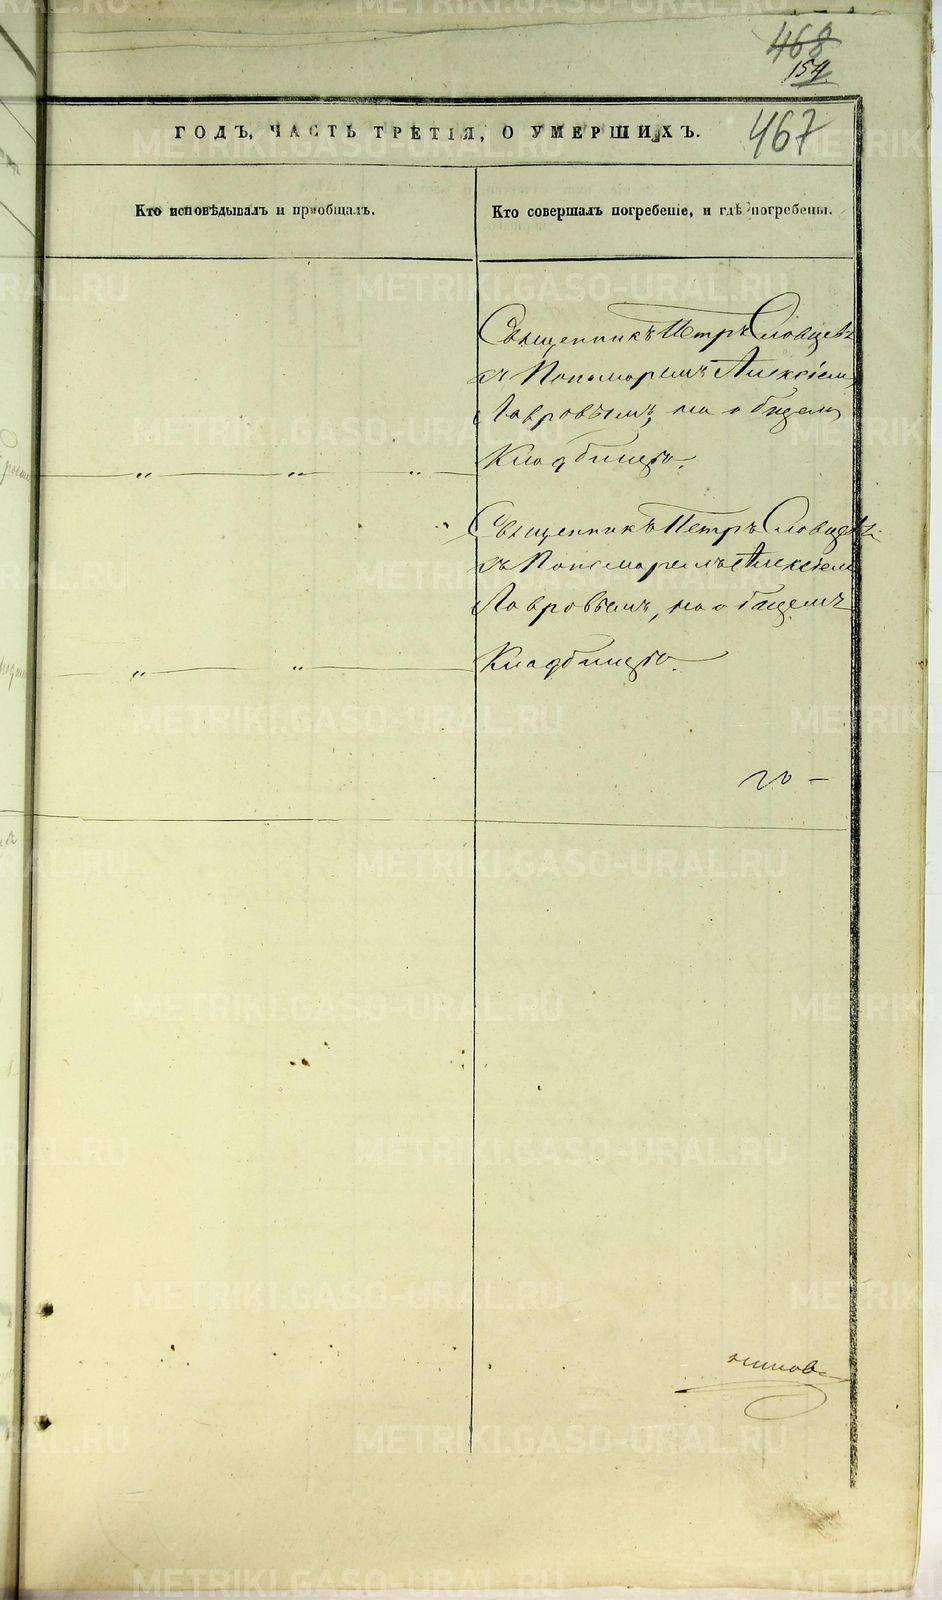 468
154
ГОДЪ, ЧАСТЬ ТРЕТІЯ, О УМЕРШИХЪ.
467
Кто исповѣдывалъ и пріобщалъ.
Кто совершалъ погребеніе, и гдѣ погребены.
Священникъ Петръ Словцевъ
съ Пономаремъ Алексіем
Лавровымъ, на общем
Кладбищѣ.
Священникъ Петръ Словцевъ
съ Пономаремъ Алексіем
Лавровымъ, на общемъ
Кладбищѣ.
го –
METRIKI.GASO-URAL.RU